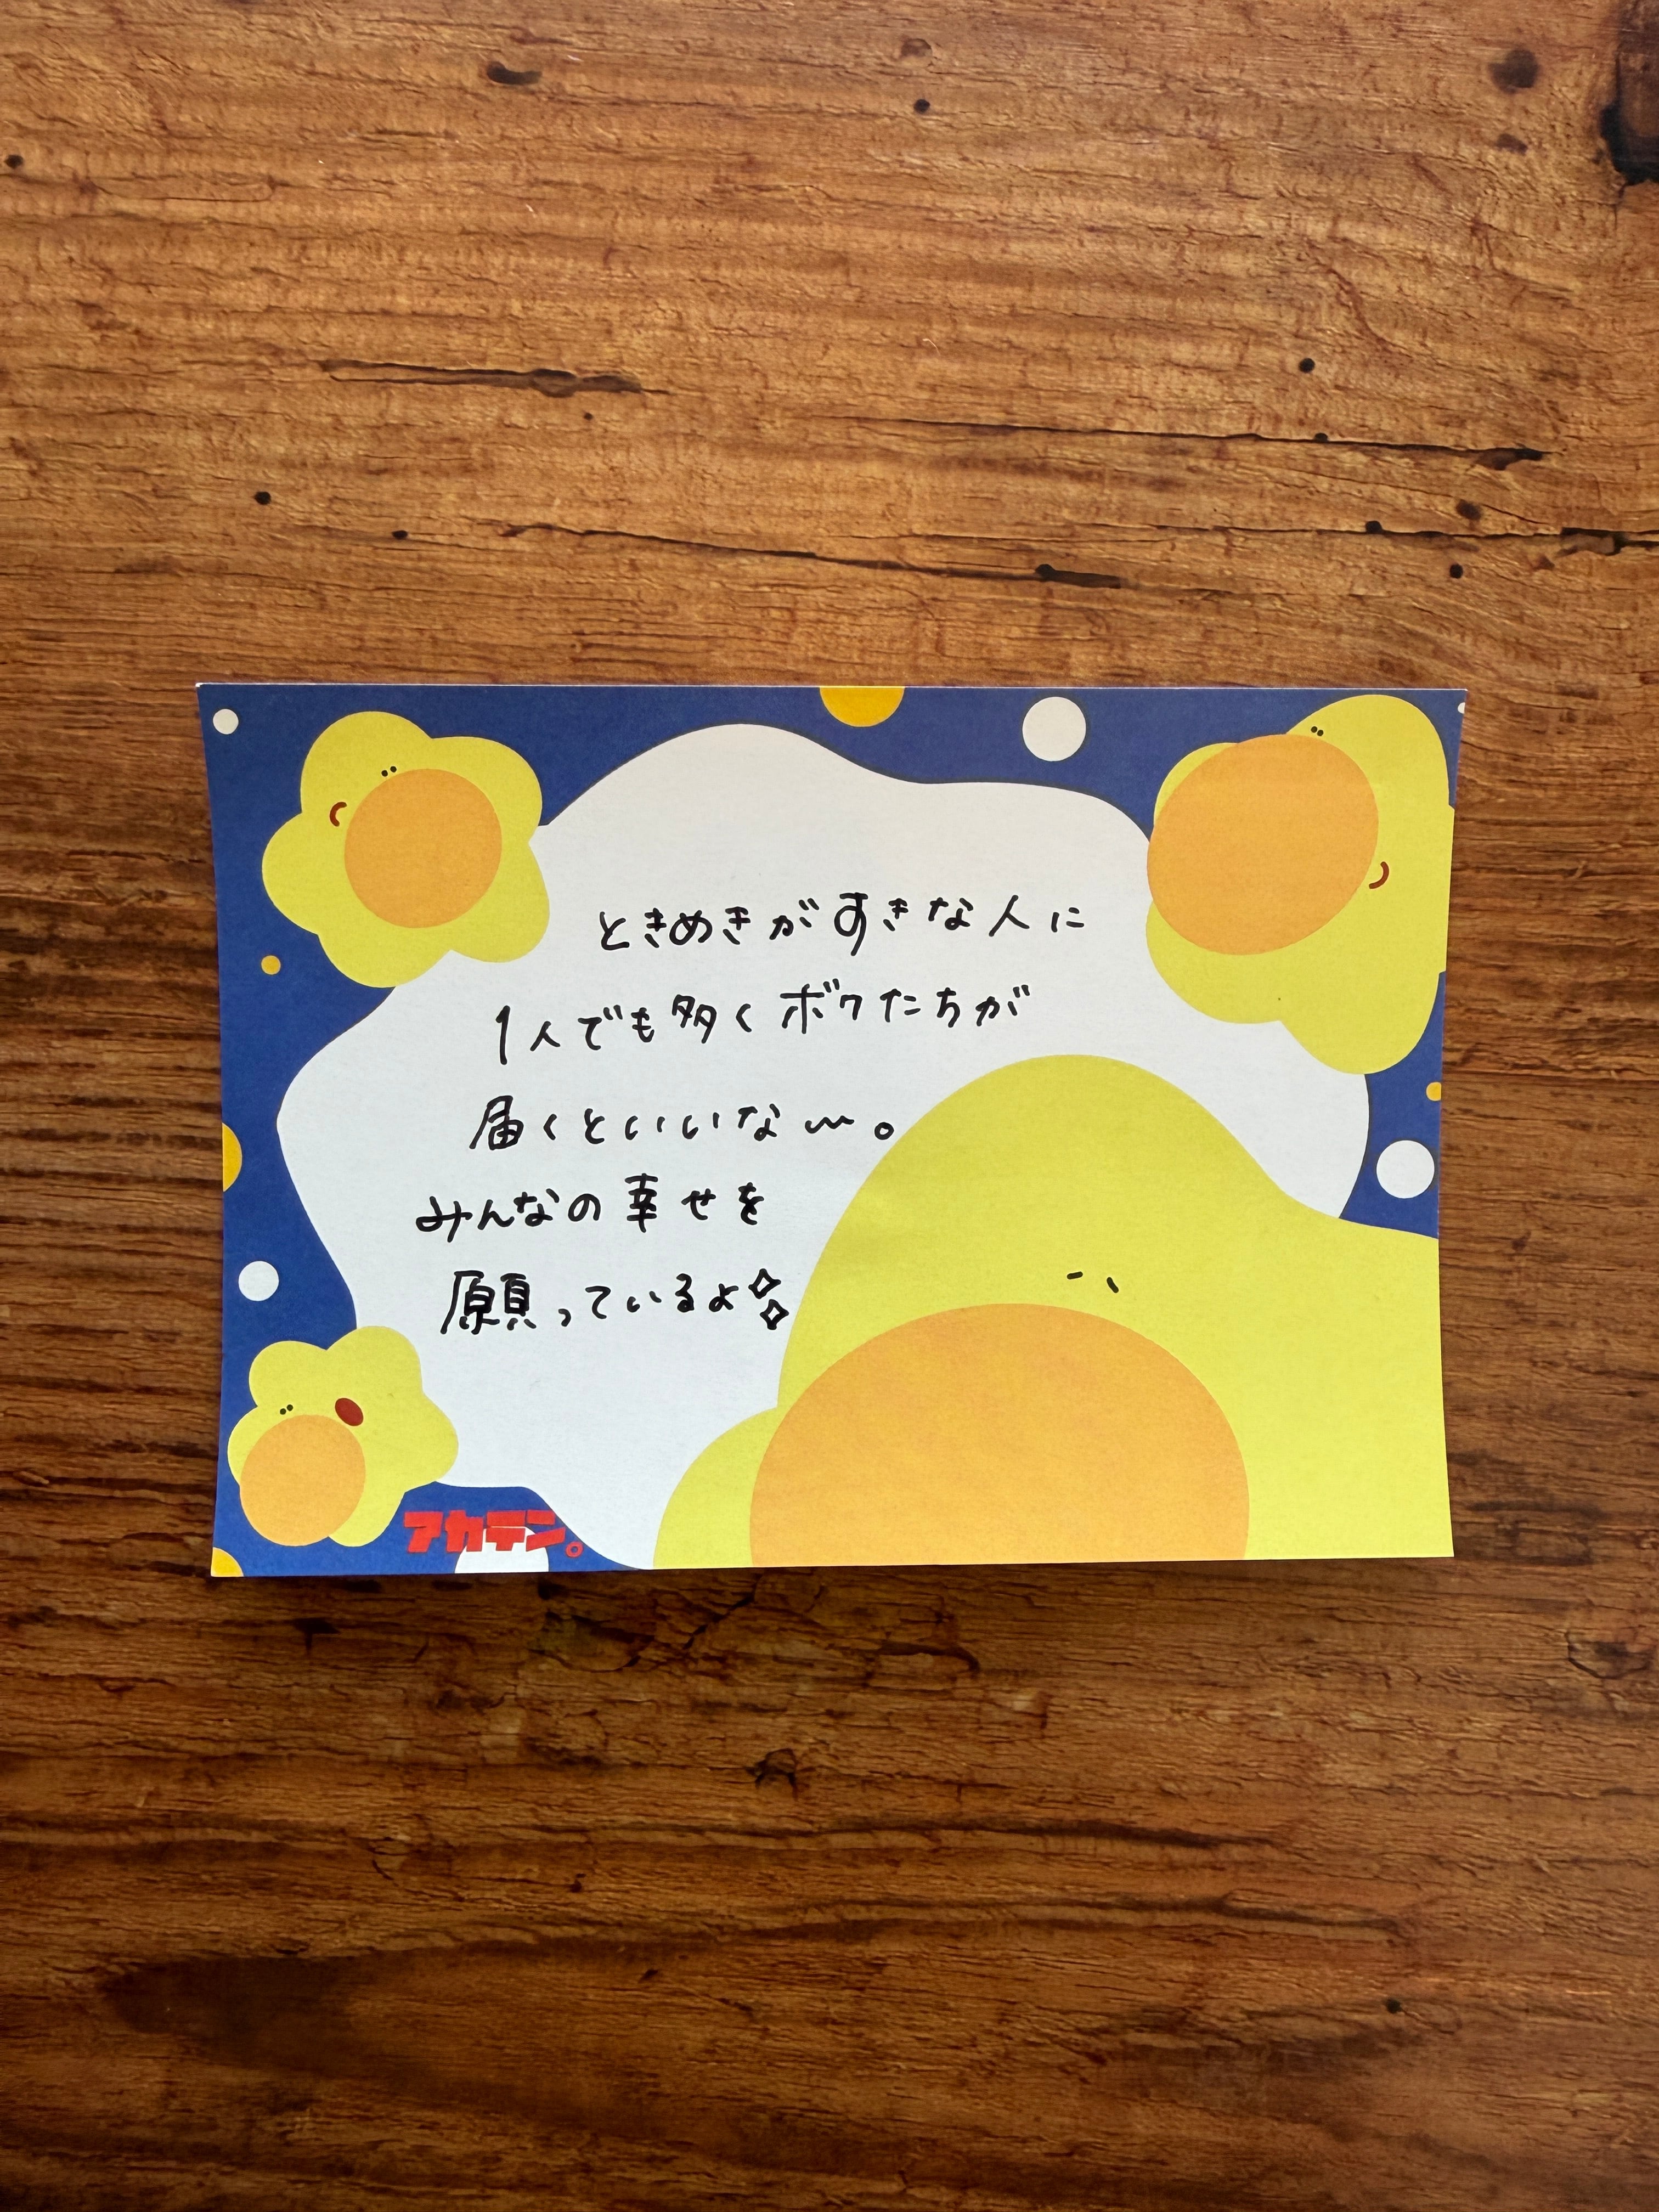 ときめきがすきな人に
1人でも多くボクたちが
届くといいな〜。
みんなの幸せを
願っているよ
アカテン。